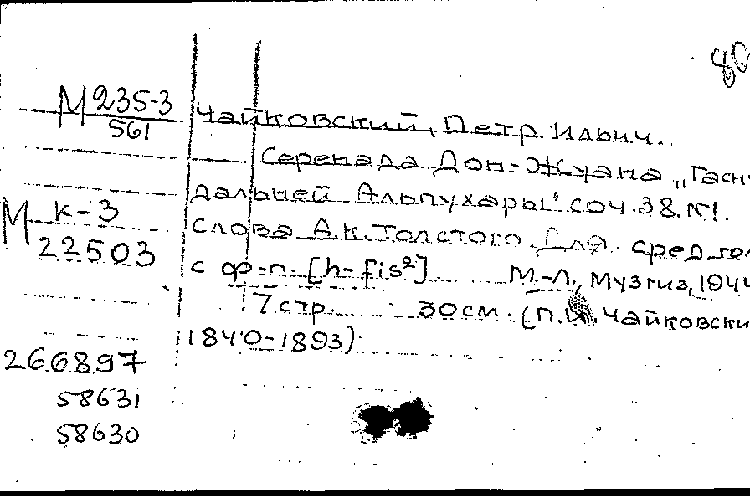 80
М 235-3
561
Чайковский, Петр Ильич.
Серенада Дон-Жуана „Гасн
дальней Альпухары" соч. 38. №1.
М к-3
22503
Слова А.К. Толстого. Для сред. гол
с ф-п. [h-fis²]. М.-Л., Музгиз, 194
7 стр. 30 см. (П.И. Чайковски
1840-1893)
266897
58631
58630